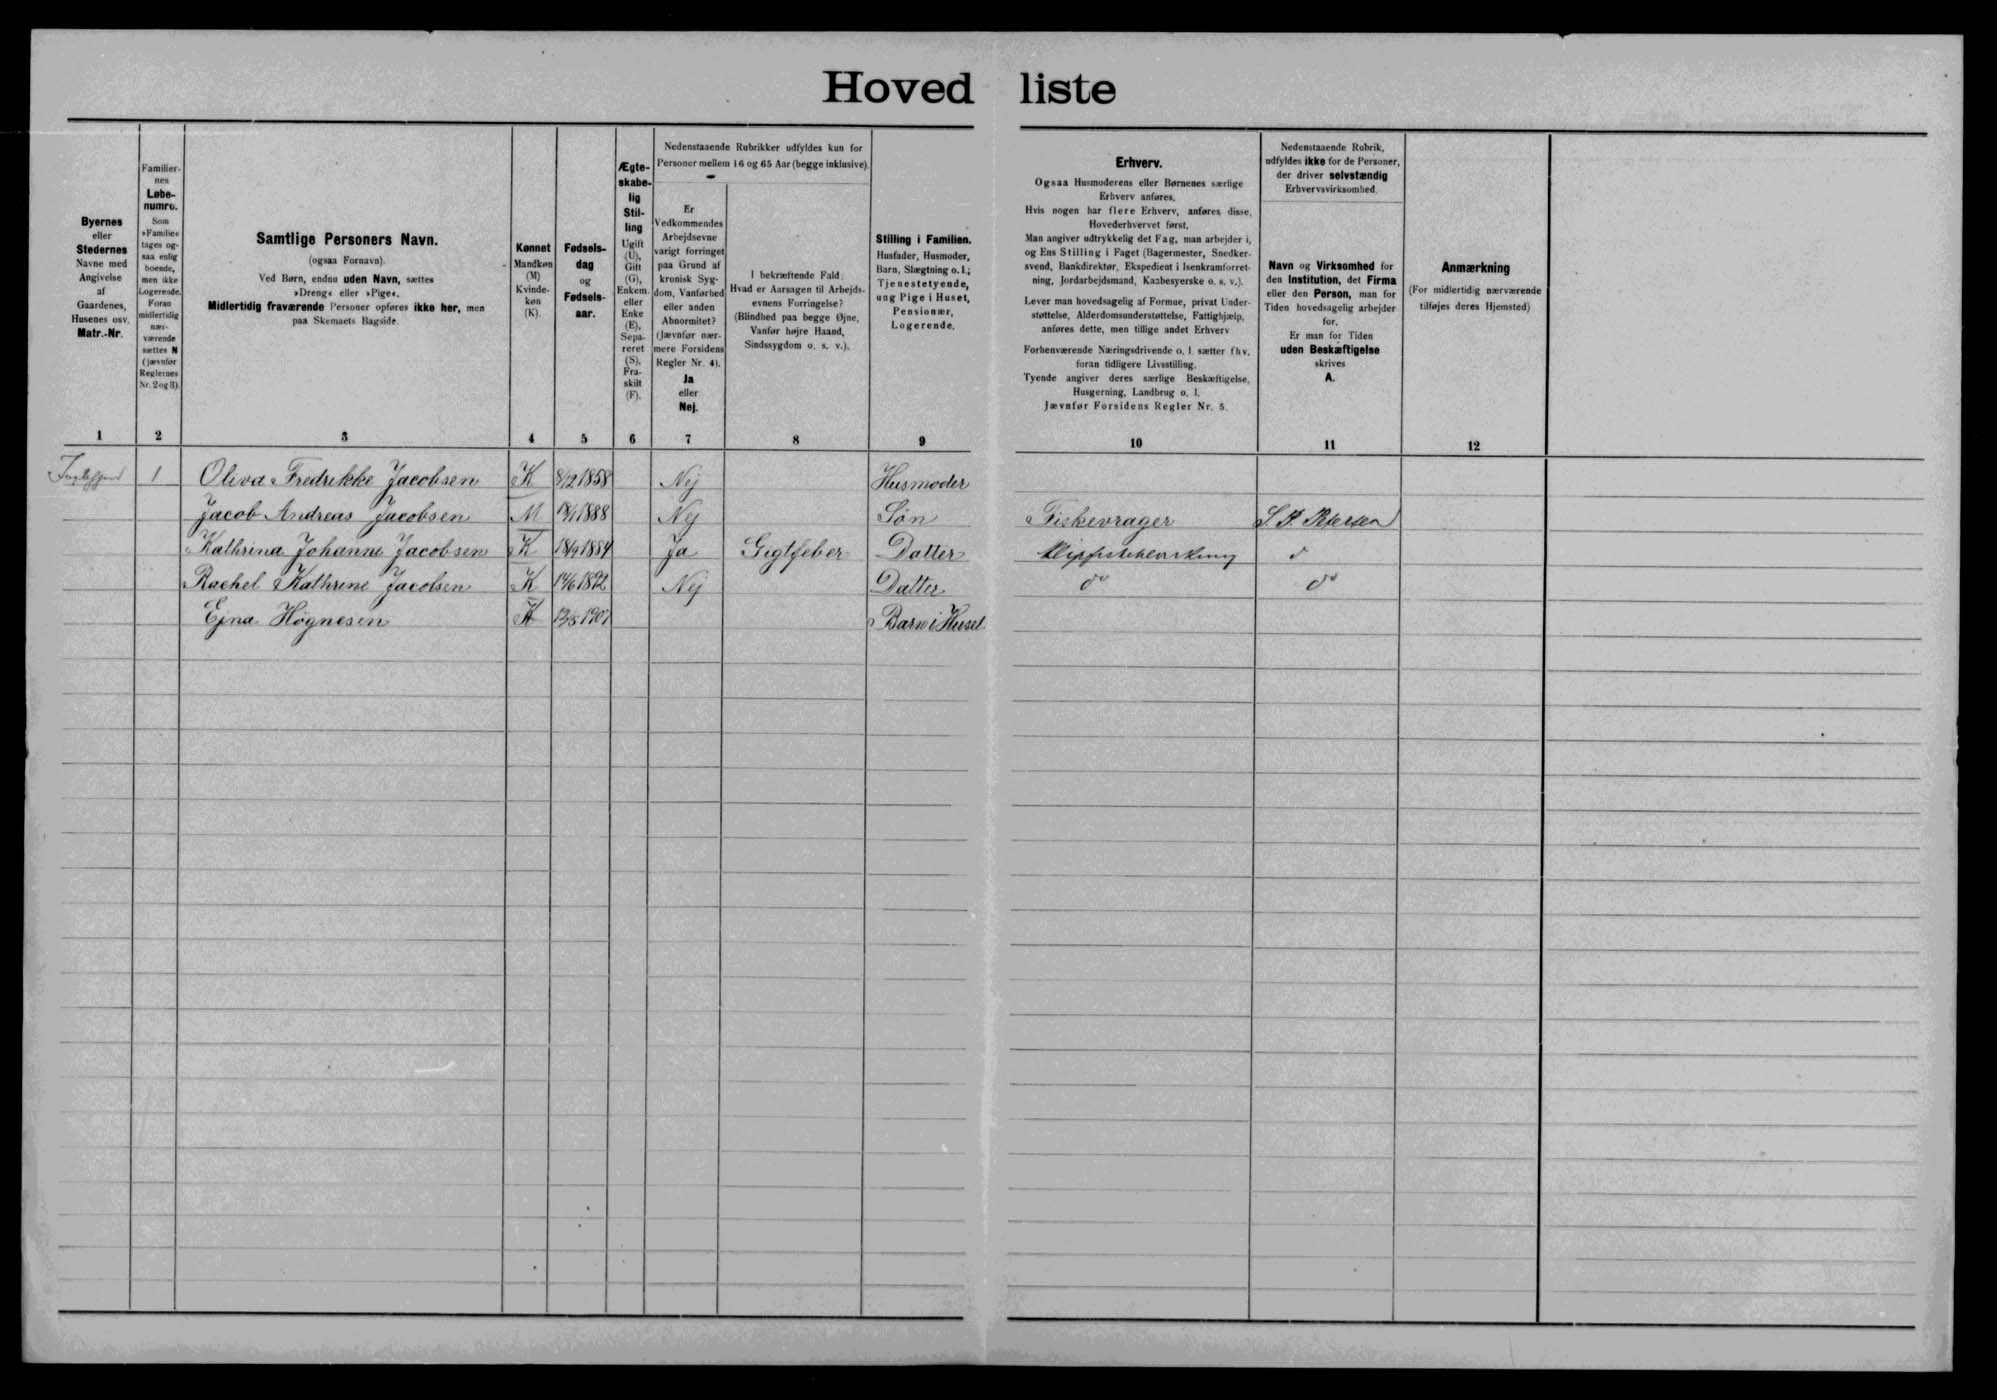 Hovedliste
Byernes
eller
Stedernes
Navne med
Angivelse
af
Gaardenes,
Husenes osv.
Matr.-Nr.
Familier-
nes
Løbe-
numre.
Som
»Familie«
tages og-
saa enlig
boende,
men ikke
Logerende.
Foran
midlertidig
nær-
værende
sættes N
(jævnfør
Reglernes
Nr. 2 og 3).
Samtlige Personers Navn.
(ogsaa Fornavn).
Ved Børn, endnu uden Navn, sættes
»Dreng« eller »Pige«.
Midlertidig fraværende Personer opføres ikke her, men
paa Skemaets Bagside.
Kønnet
Mandkøn
(M)
Kvinde-
køn
(K).
Fødsels-
dag
og
Fødsels-
aar.
Ægte-
skabe-
lig
Stil-
ling
Ugift
(U),
Gift
(G),
Enkem.
eller
Enke
(E),
Sepa-
reret
(S),
Fra-
skilt
(F).
Nedenstaaende Rubrikker udfyldes kun for
Personer mellem 16 og 65 Aar (begge inklusive).
Er
Vedkommendes
Arbejdsevne
varigt forringet
paa Grund af
kronisk Syg-
dom, Vanførhed
eller anden
Abnormitet?
(Jævnfør nær-
mere Forsidens
Regler Nr. 4).
Ja
eller
Nej.
I bekræftende Fald:
Hvad er Aarsagen til Arbejds-
evnens Forringelse?
(Blindhed paa begge Øjne,
Vanfør højre Haand,
Sindssygdom o. s. v.).
Stilling i Familien.
Husfader, Husmoder,
Barn, Slægtning o. l.;
Tjenestetyende,
ung Pige i Huset,
Pensionær,
Logerende.
Erhverv.
Ogsaa Husmoderens eller Børnenes særlige
Erhverv anføres.
Hvis nogen har flere Erhverv, anføres disse,
Hovederhvervet først.
Man angiver udtrykkelig det Fag, man arbejder i,
og Ens Stilling i Faget (Bagermester, Snedker-
svend, Bankdirektør, Ekspedient i Isenkramforret-
ning, Jordarbejdsmand, Kaabesyerske o. s. v.).
Lever man hovedsagelig af Formue, privat Under-
støttelse, Alderdomsunderstøttelse, Fattighjælp,
anføres dette, men tillige andet Erhverv
Forhenværende Næringsdrivende o. l. sætter fhv.
foran tidligere Livsstilling.
Tyende angiver deres særlige Beskæftigelse,
Husgerning, Landbrug o. l.
Jævnfør Forsidens Regler Nr. 5.
Nedenstaaende Rubrik,
udfyldes ikke for de Personer,
der driver selvstændig
Erhvervsvirksomhed.
Navn og Virksomhed for
den Institution, det Firma
eller den Person, man for
Tiden hovedsagelig arbejder
for.
Er man for Tiden
uden Beskæftigelse
skrives
A.
Anmærkning
(For midlertidig nærværende
tilføjes deres Hjemsted)
1 2 3 4 5 6 7 8 9 10 11 12
1 Oliva Fredrikke Jacobsen K 8/12 1858 Nej Husmoder
Jacob Andreas Jacobsen M 1888 Nej Søn Fiskevrager S. P. Petersen
Kathrina Johanne Jacobsen K 18/9 1884 Ja Gigtfeber Datter do
Rachel Kathrine Jacobsen K 14/6 1892 Nej Datter do do
Ejna Høgnesen K 1907 Barn i Huset